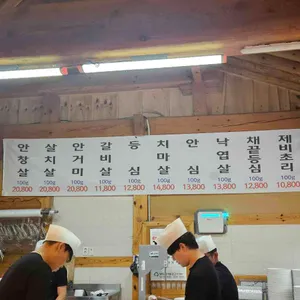 안창살 100g 20,800
살치살 100g 20,800
안거미 100g 20,800
갈비살 100g 11,800
등심 100g 12,800
치마살 100g 14,800
안심 100g 13,800
낙엽살 100g 13,800
채끝등심 100g 12,800
제비초리 100g 10,800